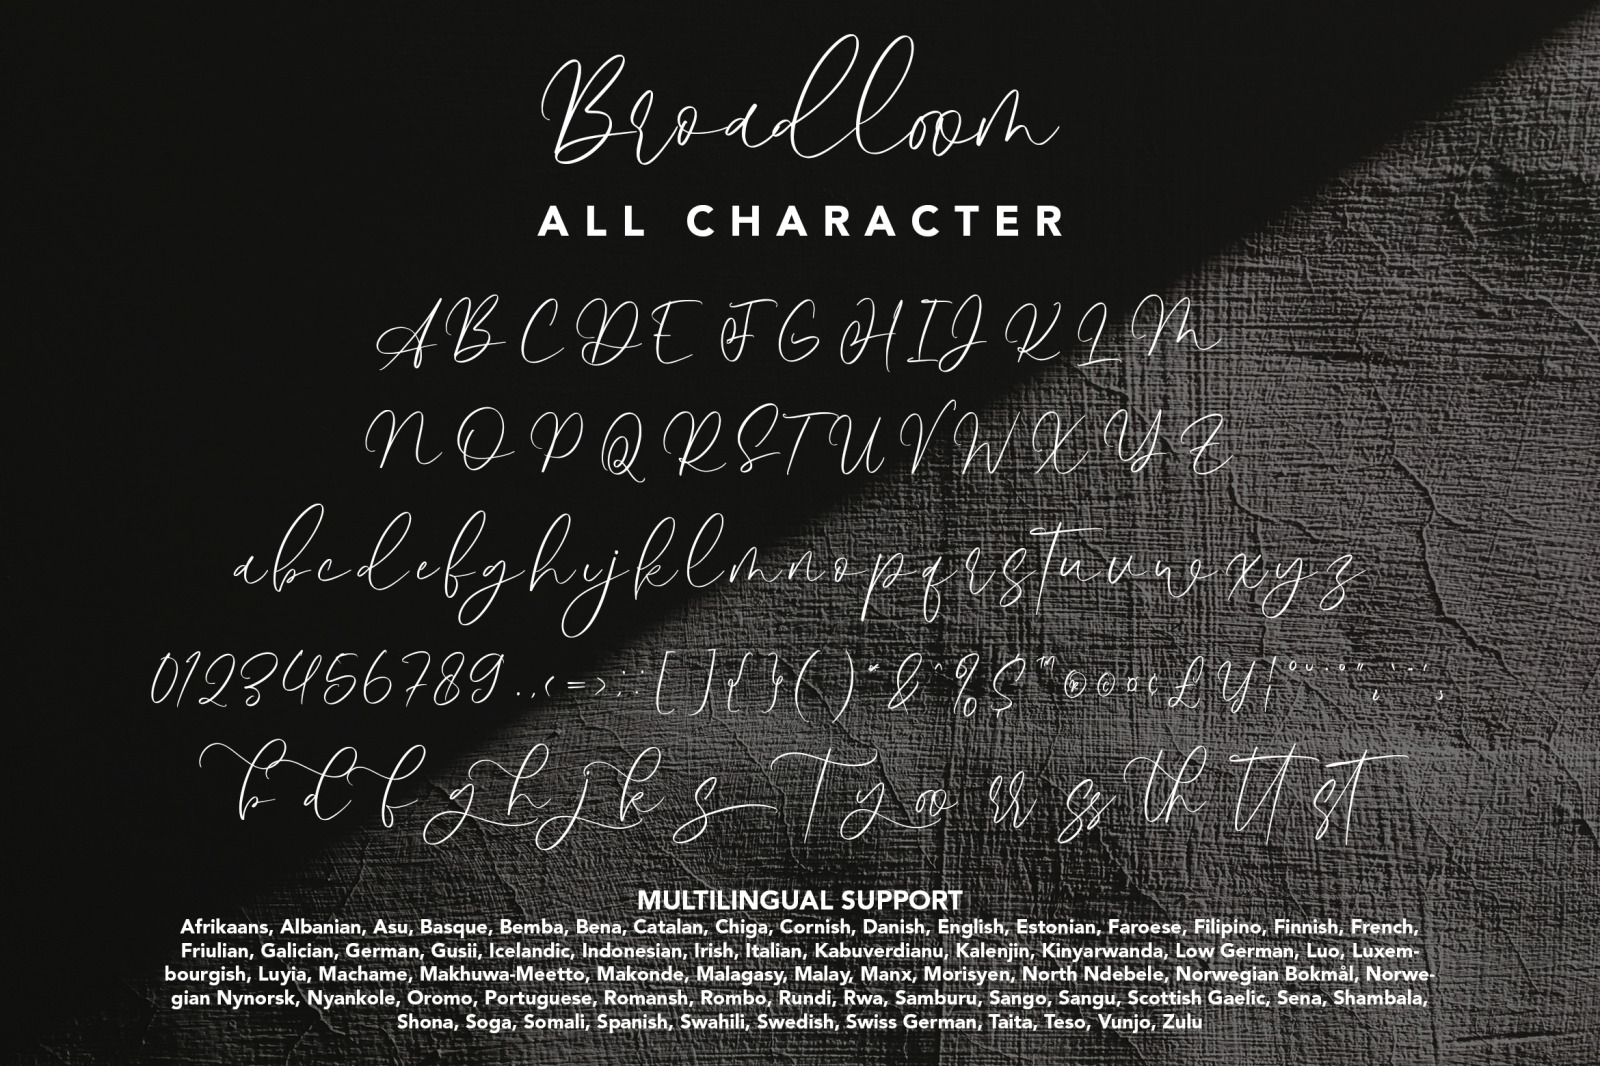 Broadloom
ALL CHARACTER
A B C D E F G H I J K L M
N O P Q R S T U V W X Y Z
a b c d e f g h y j k l m n o p q r s t u v w x y z
0 1 2 3 4 5 6 7 8 9 . , , ‹ = › ; : [ ] { } ( ) * & ^ % $ ™ ® © ¤ ¢ £ Y |
b d f g h j k s T y oo rr ss th tt st
MULTILINGUAL SUPPORT
Afrikaans, Albanian, Asu, Basque, Bemba, Bena, Catalan, Chiga, Cornish, Danish, English, Estonian, Faroese, Filipino, Finnish, French,
Friulian, Galician, German, Gusii, Icelandic, Indonesian, Irish, Italian, Kabuverdianu, Kalenjin, Kinyarwanda, Low German, Luo, Luxem-
bourgish, Luyia, Machame, Makhuwa-Meetto, Makonde, Malagasy, Malay, Manx, Morisyen, North Ndebele, Norwegian Bokmål, Norwe-
gian Nynorsk, Nyankole, Oromo, Portuguese, Romansh, Rombo, Rundi, Rwa, Samburu, Sango, Sangu, Scottish Gaelic, Sena, Shambala,
Shona, Soga, Somali, Spanish, Swahili, Swedish, Swiss German, Taita, Teso, Vunjo, Zulu